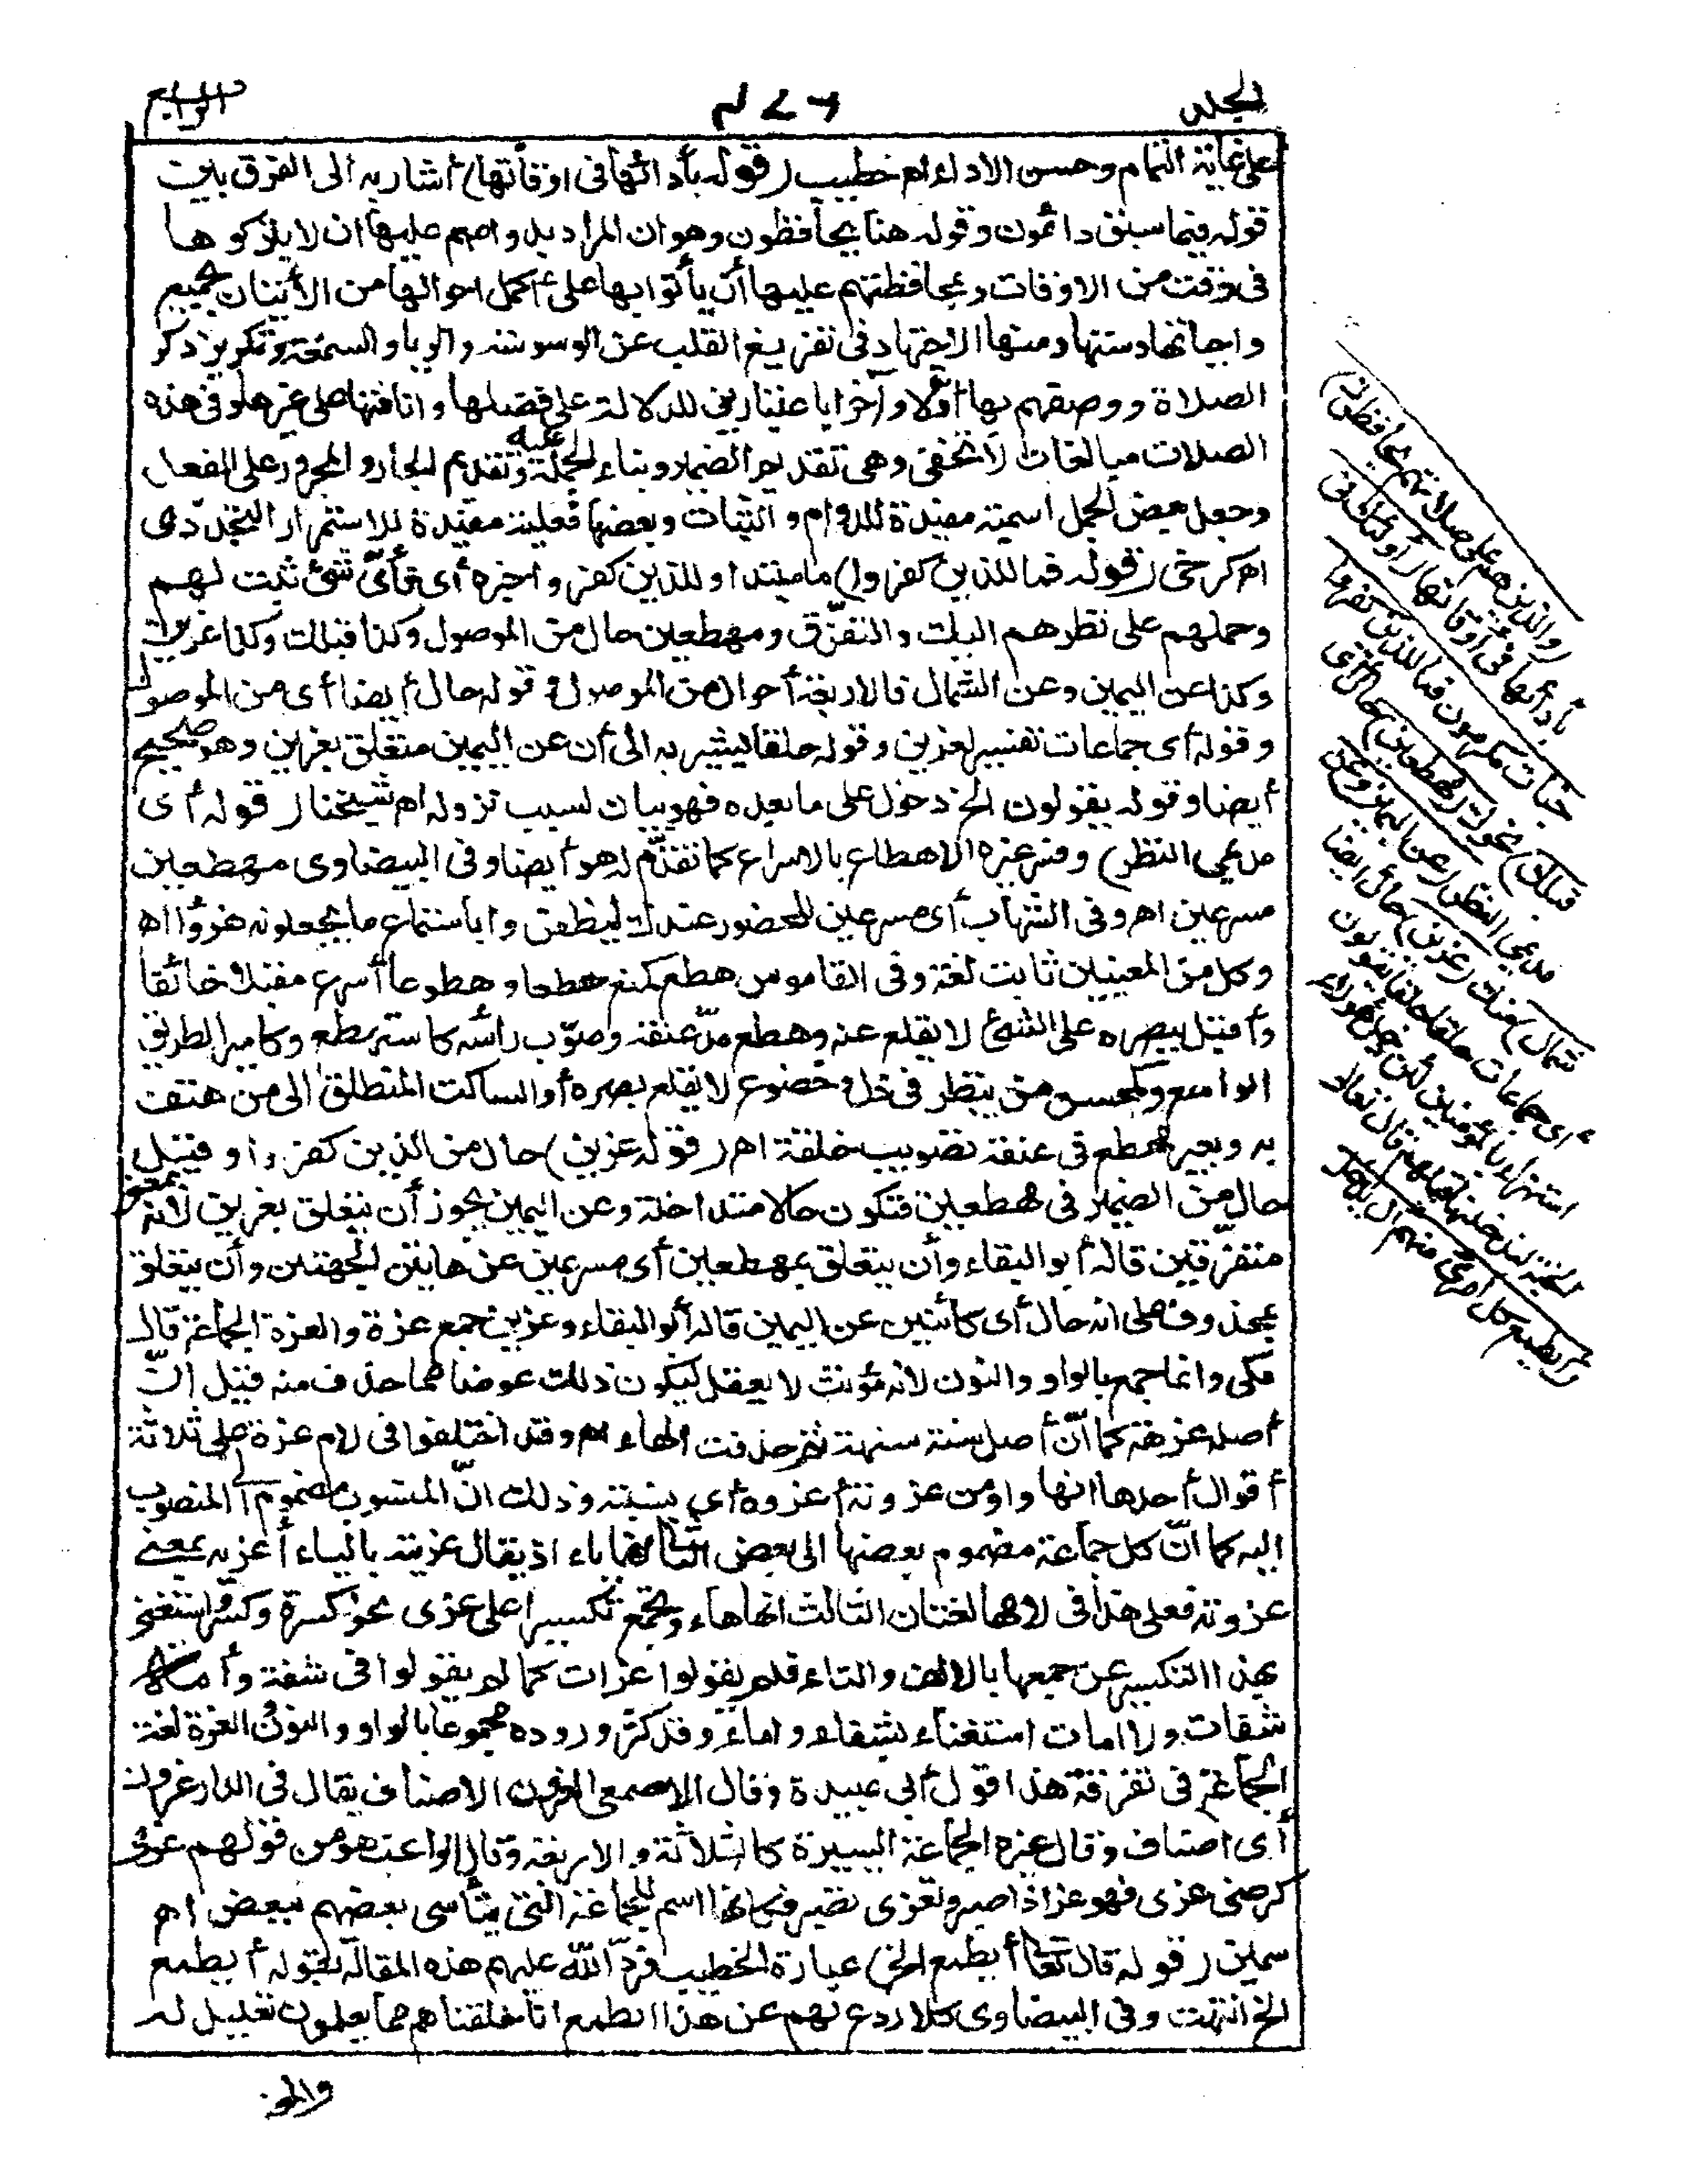 المجلد
الرابع
على غاية التمام وحسن الاداء اه خطيب (قوله بأدائها في اوقاتها) أشار به الى الفرق بين
قوله فيما سبق دائمون وقوله هنا يحافظون وهو ان المراد بدوامهم عليها ان لا يتركوها
فى وقت من الاوقات وبمحافظتهم عليها أن يأتوا بها على أكمل احوالها من الأتيان بجميع
واجباتها وسننها ومنها الاجتهاد فى تفريغ القلب عن الوسوسة والريا والسمعة وتكرير ذكر
الصلاة ووصفهم بها أوّلا وآخرا باعتبارين للدلالة على فضلها وانافتها على غيرها وفى هذه
الصلات مبالغات لا تخفى وهى تقديم الضمير وبناء الجملة عليه وتقديم الجار والمجرور على الفعل
وجعل بعض الجمل اسمية مفيدة للدوام والثبات وبعضها فعلية مفيدة للاستمرار التجددى
اه كرخى (قوله فما للذين كفروا) ما مبتدا وللذين كفروا خبره أى فأىّ شئ ثبت لهم
وحملهم على نظرهم اليك والتفرّق ومهطعين حال من الموصول وكذا قبلك وكذا عزين
وكذا عن اليمين وعن الشمال فالاربعة أحوال من الموصول وقوله حال أيضا أى من الموصول
وقوله أى جماعات تفسير لعزين وقوله حلقا يشير به الى أن عن اليمين متعلق بعزين وهو صحيح
أيضا وقوله يقولون الخ دخول على ما بعده فهو بيان لسبب نزوله اه شيخنا (قوله أى
مديمى النظر) وفسر غيره الاهطاع بالاسراع كما تقدّم له هو أيضا وفى البيضاوى مهطعين
مسرعين اه وفى الشهاب أى مسرعين للحضور عندك ليظفروا باستماع ما يجعلونه هزؤا اه
وكل من المعنيين ثابت لغة وفى القاموس هطع كمنع هطعا وهطوعا أسرع مقبلا خائفا
وأقبل ببصره على الشئ لا يقلع عنه وهطع مدّ عنقه وصوّب رأسه كاستهطع وكامير الطريق
الواسع وكمحسن من ينظر فى ذل وخضوع لا يقلع بصره أو الساكت المنطلق الى من هتف
به وبعير مهطع فى عنقه تصويب خلقة اه (قوله عزين) حال من الذين كفروا وقيل
حال من الضمير فى مهطعين فتكون حالا متداخلة وعن اليمين يجوز أن يتعلق بعزين لانه بمعنى
متفرّقين قاله أبو البقاء وأن يتعلق بمهطعين أى مسرعين عن هاتين الجهتين وأن يتعلق
بمحذوف على انه حال أى كائنين عن اليمين قاله أبو البقاء وعزين جمع عزة والعزة الجماعة قاله
مكى وانما جمع بالواو والنون لانه مؤنث لا يعقل ليكون ذلك عوضا مما حذف منه قيل انّ
أصله عزهة كما انّ أصل سنة سنهة ثم حذفت الهاء اه وقد اختلفوا فى لام عزة على ثلاثة
أقوال أحدها انها واو من عزوته أعزوه أى نسبته وذلك انّ المنسوب مضموم الى المنصوب
اليه كما انّ كل جماعة مضموم بعضها الى بعض الثانى انها ياء اذ يقال عزيته بالياء أعزيه بمعنى
عزوته فعلى هذا فى لامها لغتان الثالث انها هاء وتجمع تكسيرا على عزى نحو كسرة وكسر واستغنى
بهذا التكسير عن جمعها بالالف والتاء فلم يقولوا عزات كما لم يقولوا فى شفة وأمة
شفات ولا امات استغناء بشفاه واماء وقد كثر وروده مجموعا بالواو والنون العزة لغة
الجماعة فى تفرقة هذا قول أبى عبيدة وقال الاصمعى العزون الاصناف يقال فى الدار عزون
أى اصناف وقال غيره الجماعة اليسيرة كالثلاثة والاربعة وقال الراغب هو من قولهم عزى
كرضى عزى فهو عز اذا صبر وتعزى تصبر فكانها اسم للجماعة التى يتأسى بعضهم ببعض اه
سمين (قوله قال تعالى أيطمع الخ) عبارة الخطيب فردّ الله عليهم هذه المقالة بقوله أيطمع
الخ انتهت وفى البيضاوى كلا ردع لهم عن هذا الطمع انا خلقناهم مما يعلمون تعليل له
والمو
(والذين هم على صلاتهم يحافظون)
بأدائها فى أوقاتها (أولئك فى
جنات مكرمون فما للذين كفروا
قبلك) نحوك (مهطعين) حال أى
مديمى النظر (عن اليمين وعن
الشمال) منك (عزين) حال أيضا
أى جماعات حلقا حلقا يقولون
استهزاء بالمؤمنين لئن دخل هؤلاء
الجنة لندخلنها قبلهم قال تعالى
(أيطمع كل امرئ منهم ان يدخل